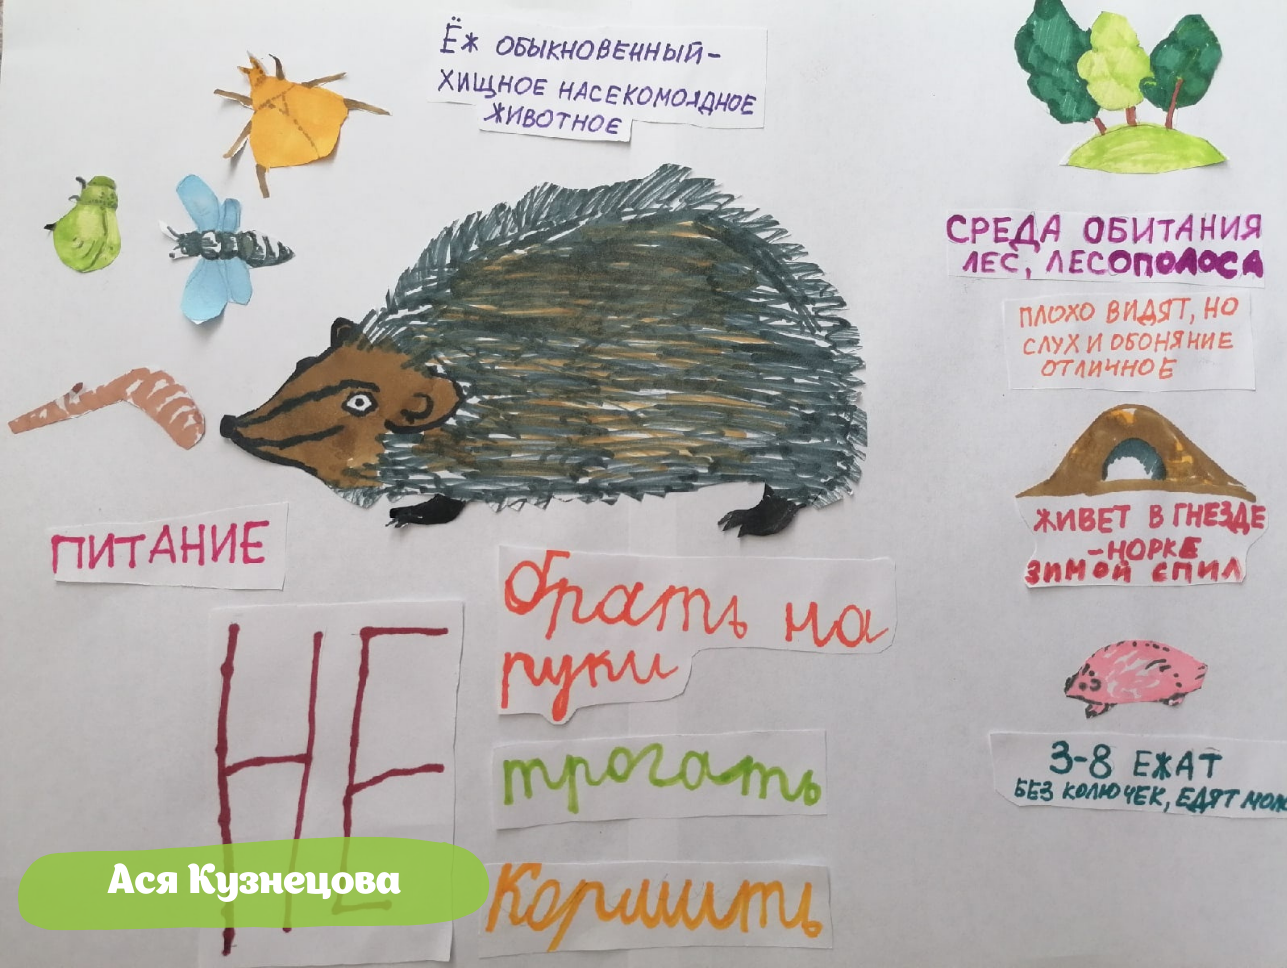 Ёж ОБЫКНОВЕННЫЙ-
ХИЩНОЕ НАСЕКОМОЯДНОЕ
ЖИВОТНОЕ
СРЕДА ОБИТАНИЯ
ЛЕС, ЛЕСОПОЛОСА
ПЛОХО ВИДЯТ, НО
СЛУХ И ОБОНЯНИЕ
ОТЛИЧНОЕ
ЖИВЕТ В ГНЕЗДЕ
-НОРКЕ
ЗИМОЙ СПИТ
3-8 ЕЖАТ
БЕЗ КОЛЮЧЕК, ЕДЯТ МОЛ
ПИТАНИЕ
НЕ
брать на
руки
трогать
Кормить
Ася Кузнецова